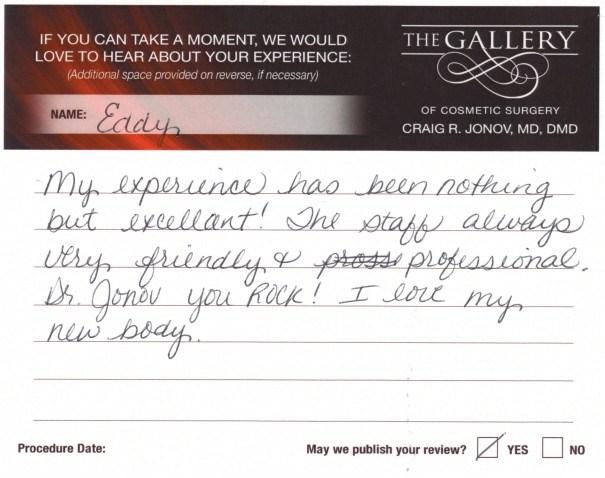 IF YOU CAN TAKE A MOMENT, WE WOULD
LOVE TO HEAR ABOUT YOUR EXPERIENCE:
(Additional space provided on reverse, if necessary)
NAME: Eddy
THE GALLERY
OF COSMETIC SURGERY
CRAIG R. JONOV, MD, DMD
My experience has been nothing
but excellant! The staff always
very friendly & professional.
Dr. Jonov you ROCK! I love my
new body.
Procedure Date:
May we publish your review? YES NO